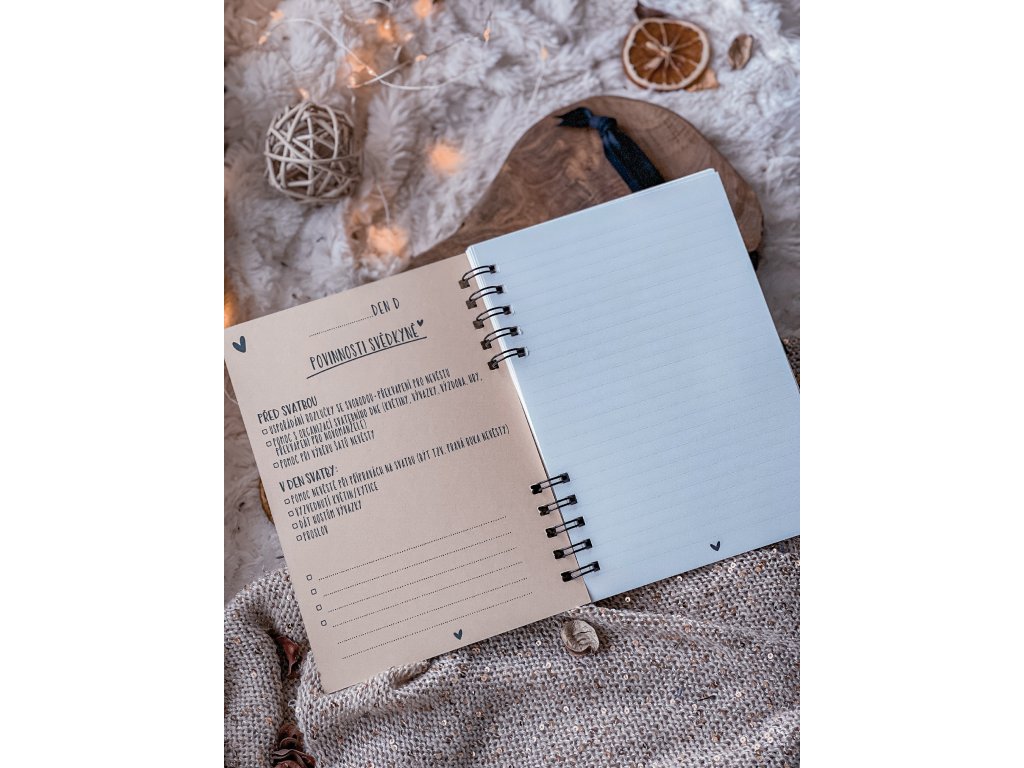 DEN D
POVINNOSTI SVĚDKYNĚ
PŘED SVATBOU
USPOŘÁDÁNÍ ROZLUČKY SE SVOBODOU-PŘEKVAPENÍ PRO NEVĚSTU
POMOC S ORGANIZACÍ SVATEBNÍHO DNE (KVĚTINY, VÝVAZKY, VÝZDOBA, HRY,
PŘEKVAPENÍ PRO NOVOMANŽELE)
POMOC PŘI VÝBĚRU ŠATŮ NEVĚSTY
V DEN SVATBY:
POMOC NEVĚSTĚ PŘI PŘÍPRAVÁCH NA SVATBU (BÝT TZV. PRAVÁ RUKA NEVĚSTY)
VYZVEDNUTÍ KVĚTIN/KYTICE
DÁT HOSTŮM VÝVAZKY
PROSLOV